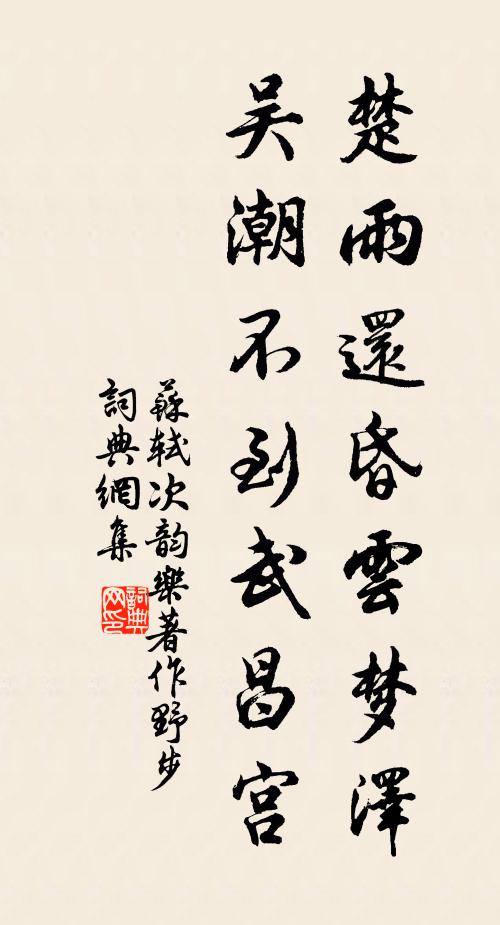 楚雨還昏雲梦澤
吴潮不到武昌宫
蘇轼次韵樂著作野步
詞典網集
詞典网印